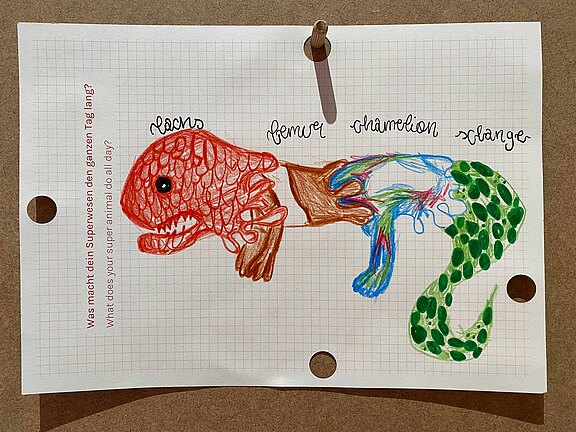 Was macht dein Superwesen den ganzen Tag lang?
What does your super animal do all day?
Lachs
Lemur
chamelion
schlange